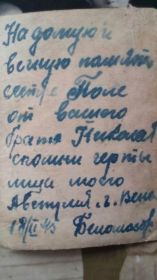 На долгую и
вечную память
сестре Поле
от вашего
брата Николая
вспомни черты
лица моего
Австрия г. Вена
Беломазов